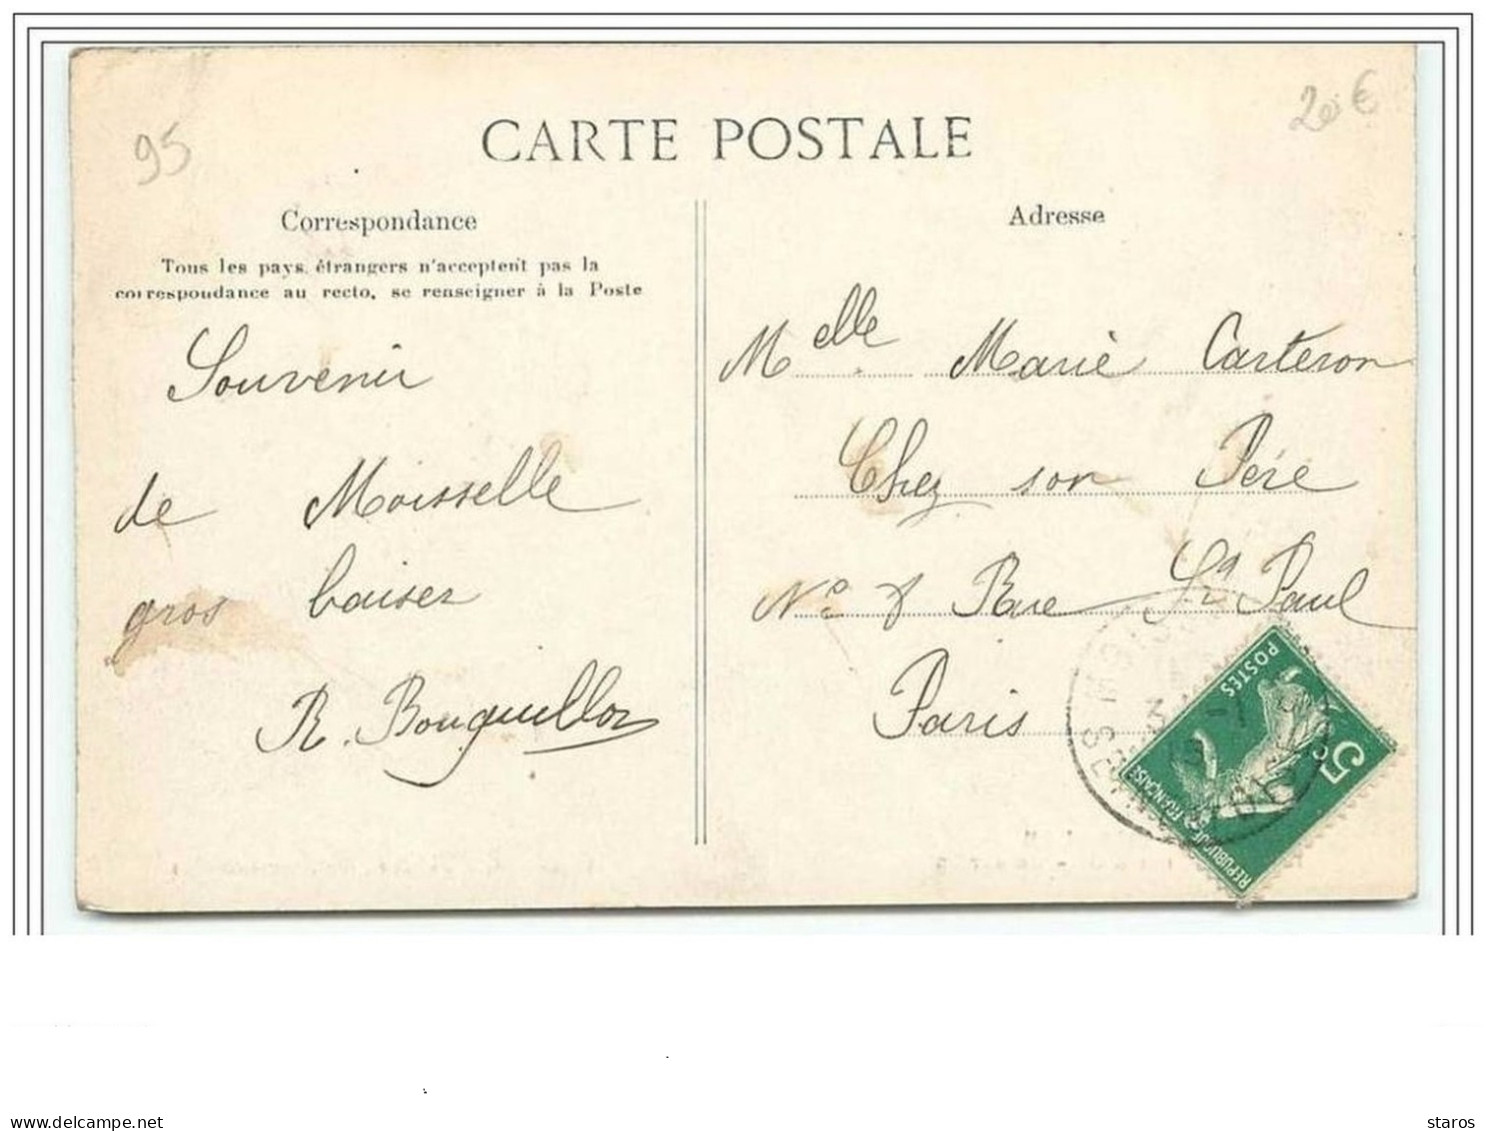 95
20 €
CARTE POSTALE
Correspondance
Tous les pays étrangers n'acceptent pas la
correspondance au recto, se renseigner à la Poste
Souvenir
de Moisselle
gros baiser
R. Bouquillon
Adresse
Melle Marie Carteron
Chez son Père
No 8 Rue St Paul
Paris
POSTES
5c
REPUBLIQUE FRANÇAISE
delcampe.net
staros